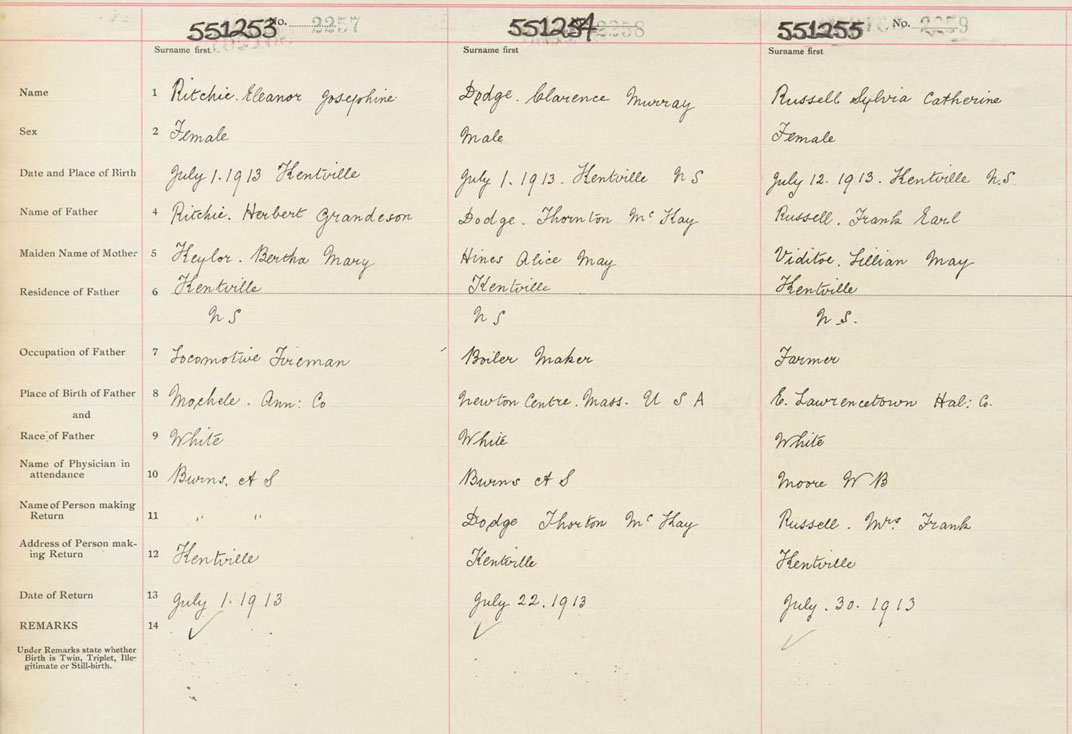 551253 No. 2257 551254 2258 551255 No. 2259
Surname first Surname first Surname first
Name 1 Ritchie. Eleanor Josephine Dodge. Clarence Murray Russell Sylvia Catherine
Sex 2 Female Male Female
Date and Place of Birth 3 July 1. 1913 Kentville July 1. 1913. Kentville N S July 12. 1913. Kentville N.S.
Name of Father 4 Ritchie. Herbert Grandeson Dodge. Thornton Mc Kay Russell. Frank Earl
Maiden Name of Mother 5 Keylor. Bertha Mary Hines Alice May Viditoe. Lillian May
Residence of Father 6 Kentville Kentville Kentville
N S N S N S.
Occupation of Father 7 Locomotive Fireman Boiler Maker Farmer
Place of Birth of Father 8 Mochele. Ann: Co Newton Centre. Mass. U S A E. Lawrencetown Hal: Co.
and
Race of Father 9 White White White
Name of Physician in
attendance 10 Burns. A S Burns A S Moore W B
Name of Person making
Return 11 " " Dodge Thorton Mc Kay Russell. Mrs Frank
Address of Person mak-
ing Return 12 Kentville Kentville Kentville
Date of Return 13 July 1. 1913 July 22. 1913 July. 30. 1913
REMARKS 14
Under Remarks state whether
Birth is Twin, Triplet, Ille-
gitimate or Still-birth.